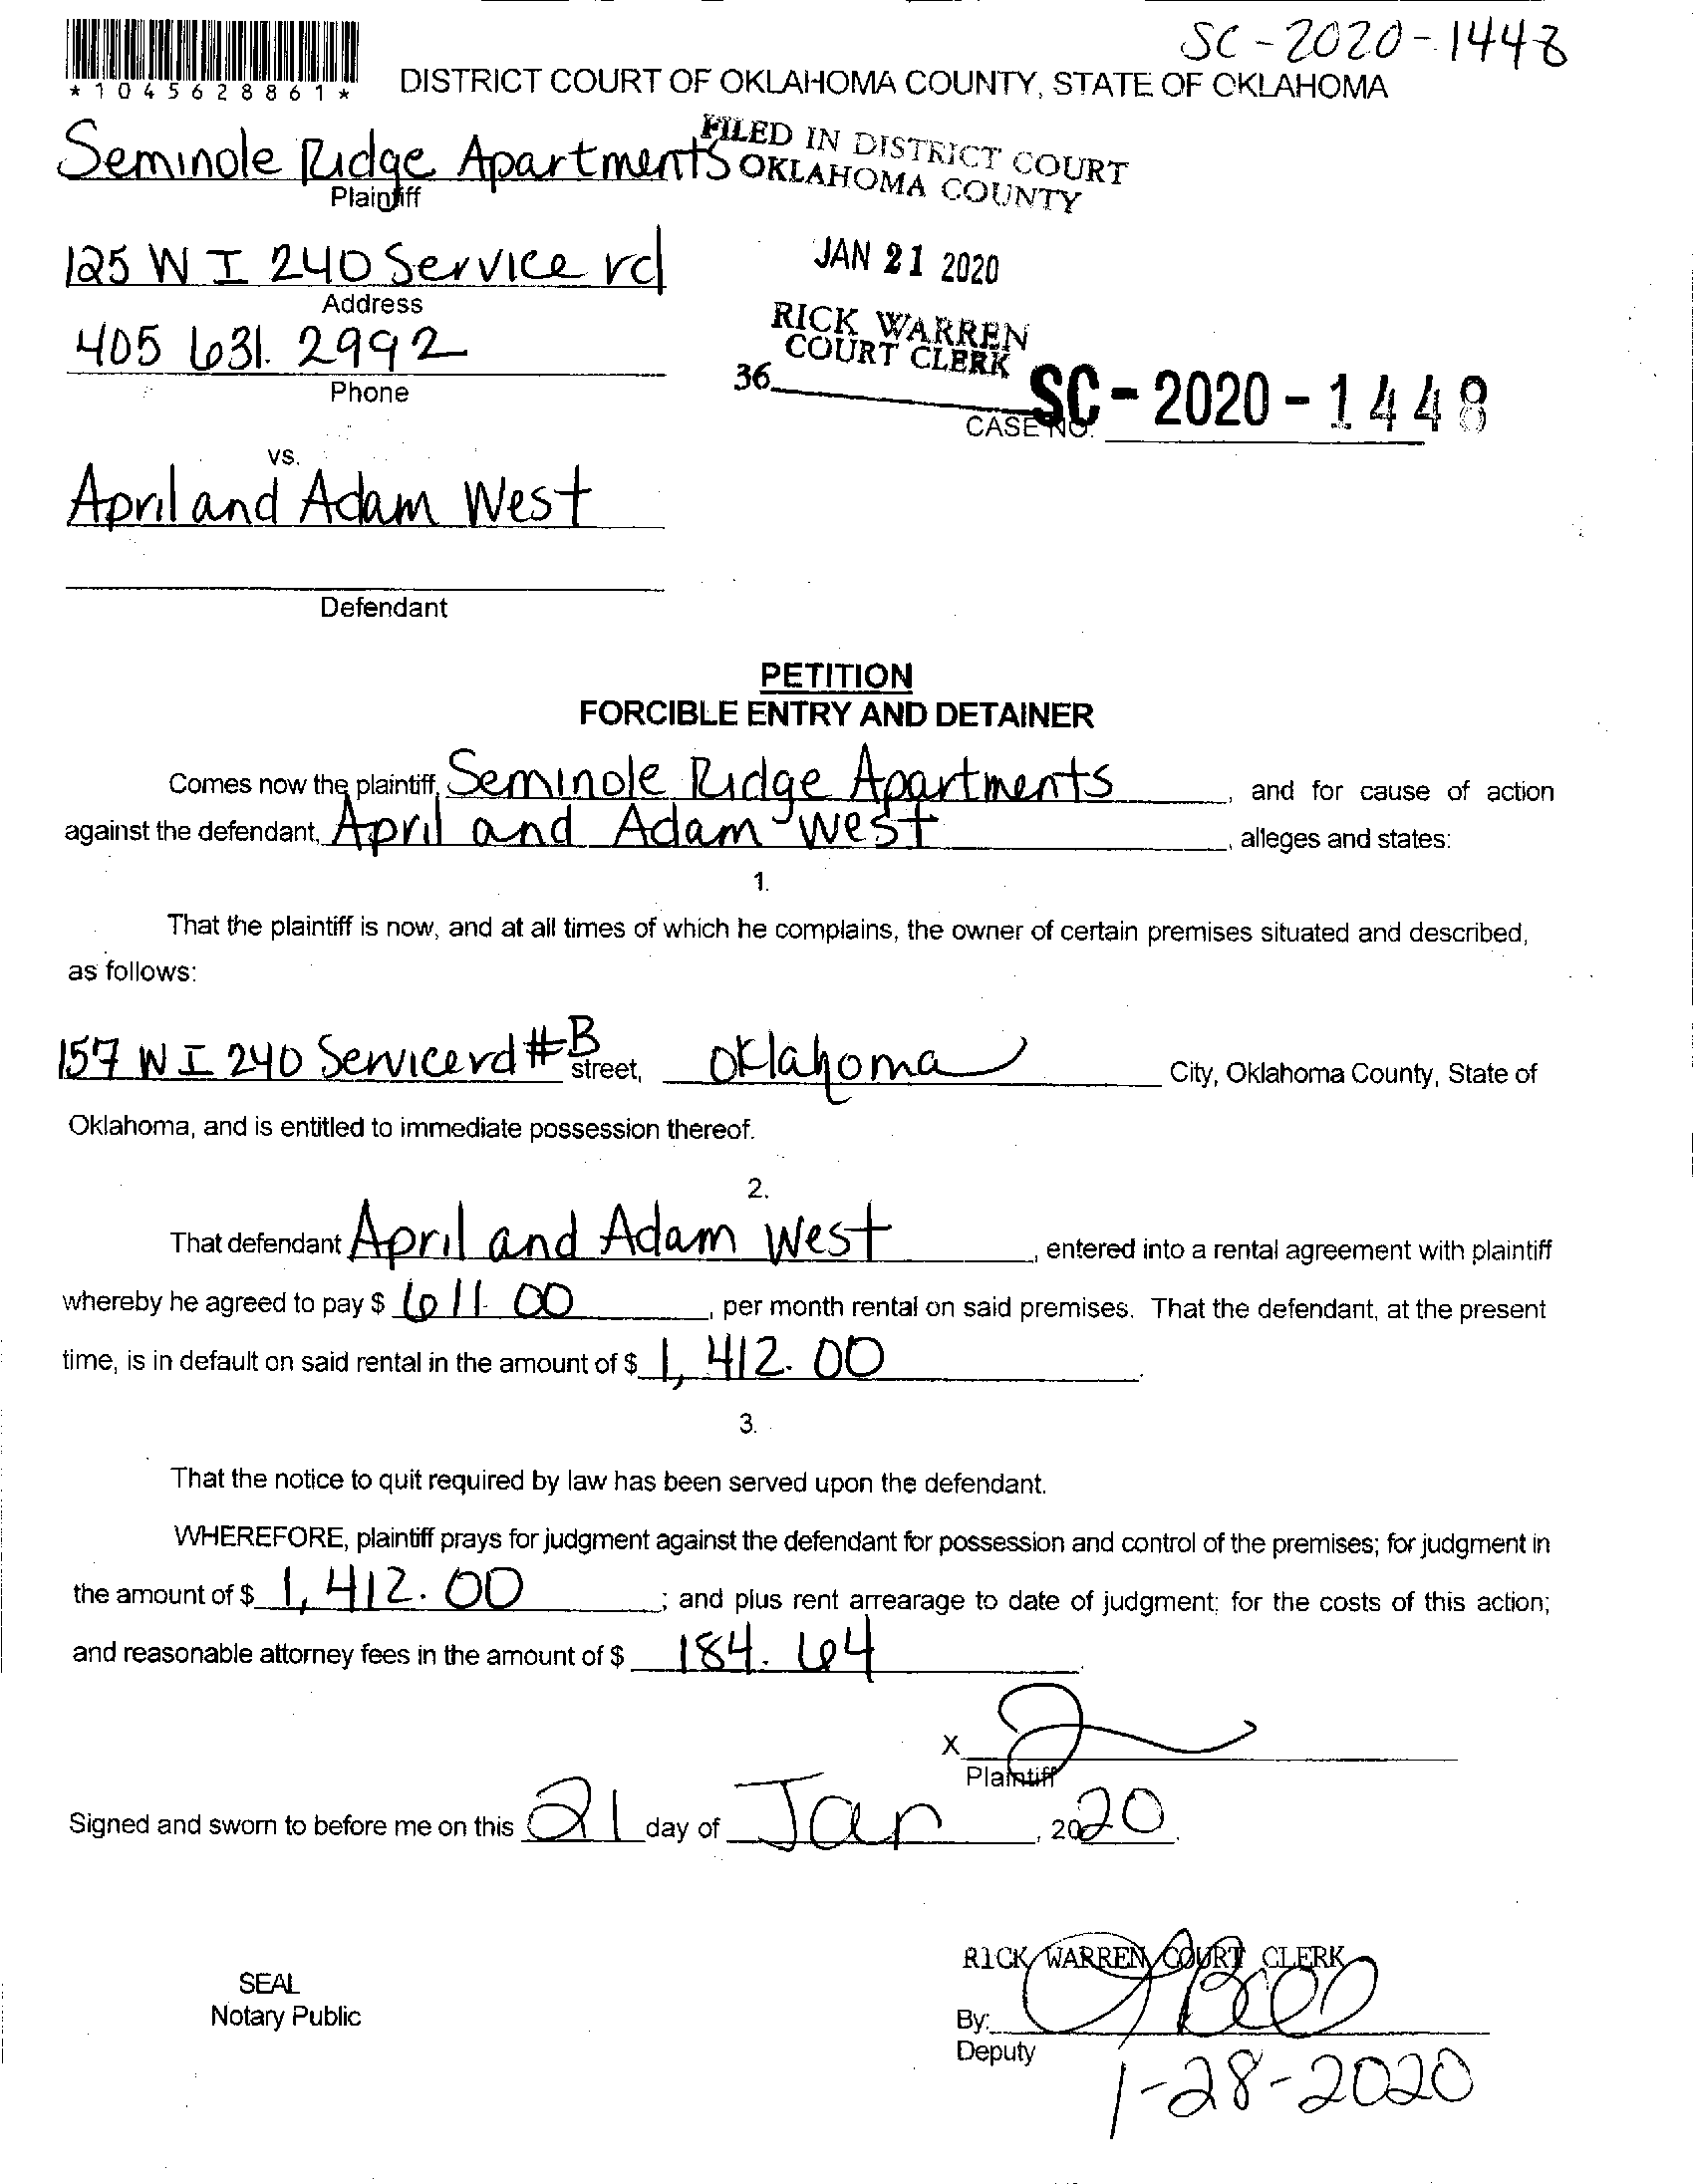 SC-2020-1448
*1045628861*
DISTRICT COURT OF OKLAHOMA COUNTY, STATE OF OKLAHOMA
Seminole Ridge Apartments
Plaintiff
FILED IN DISTRICT COURT
OKLAHOMA COUNTY
125 W I 240 Service rd
Address
JAN 21 2020
405 631. 2992
Phone
RICK WARREN
COURT CLERK
36
CASE NO. SC-2020-1448
vs.
April and Adam West
Defendant
PETITION
FORCIBLE ENTRY AND DETAINER
Comes now the plaintiff, Seminole Ridge Apartments, and for cause of action
against the defendant, April and Adam West, alleges and states:
1.
That the plaintiff is now, and at all times of which he complains, the owner of certain premises situated and described,
as follows:
157 W I 240 Service rd #B street, Oklahoma City, Oklahoma County, State of
Oklahoma, and is entitled to immediate possession thereof.
2.
That defendant April and Adam West, entered into a rental agreement with plaintiff
whereby he agreed to pay $ 611.00, per month rental on said premises. That the defendant, at the present
time, is in default on said rental in the amount of $ 1,412.00.
3.
That the notice to quit required by law has been served upon the defendant.
WHEREFORE, plaintiff prays for judgment against the defendant for possession and control of the premises; for judgment in
the amount of $ 1,412.00; and plus rent arrearage to date of judgment; for the costs of this action;
and reasonable attorney fees in the amount of $ 184.64.
X
Plaintiff
Signed and sworn to before me on this 21 day of Jan, 2020.
RICK WARREN COURT CLERK
SEAL
Notary Public
By:
Deputy
1-28-2020